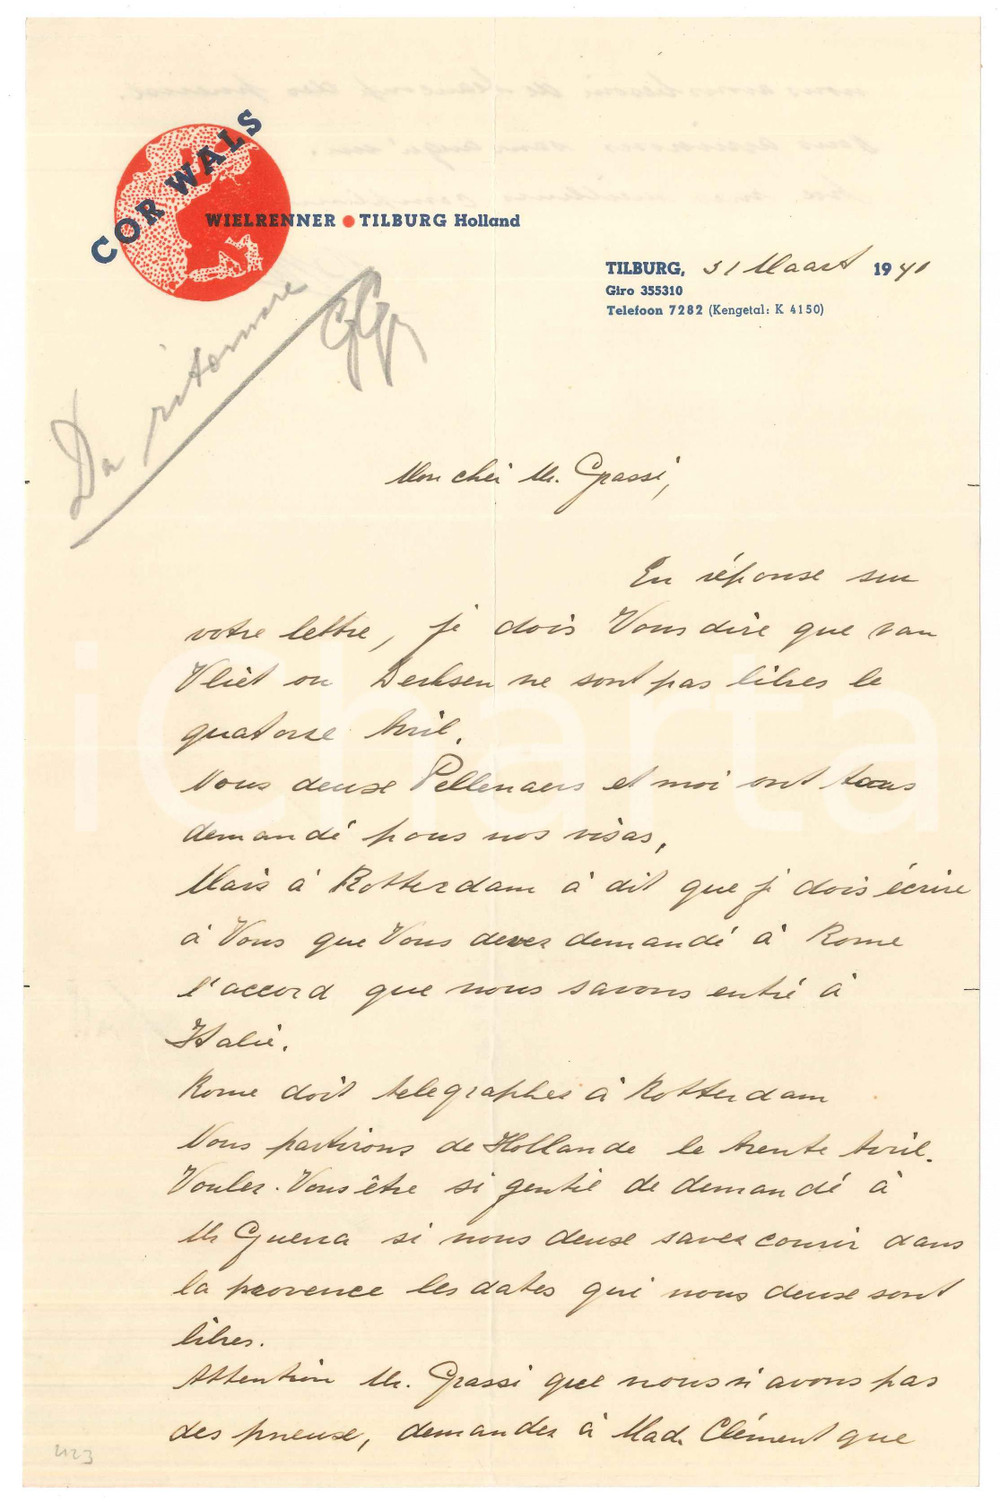 COR WALS
WIELRENNER • TILBURG Holland
TILBURG, 31 Maart 1940
Giro 355310
Telefoon 7282 (Kengetal: K 4150)
Da ritornare
Mon cher Mr. Grassi,
En réponse sur
votre lettre, je dois Vous dire que van
Vliet ou Derksen ne sont pas libres le
quatorse Avril.
Nous deuse Pellenaers et moi ont tous
demandé pous nos visas,
Mais à Rotterdam à dit que je dois écrire
à Vous que Vous devez demandé à Rome
l'accord que nous savons entré à
Italië.
Rome doit telegraphes à Rotterdam
Nous partirons de Hollande le trente Avril.
Voulez-Vous être si gentië de demandé à
Mr Guerra si nous deuse saves courir dans
la provence les dates qui nous deuse sont
libres.
Attention Mr. Grassi que nous n'avons pas
des pneuse, demandez à Mad. Clément que
4123
iCharta